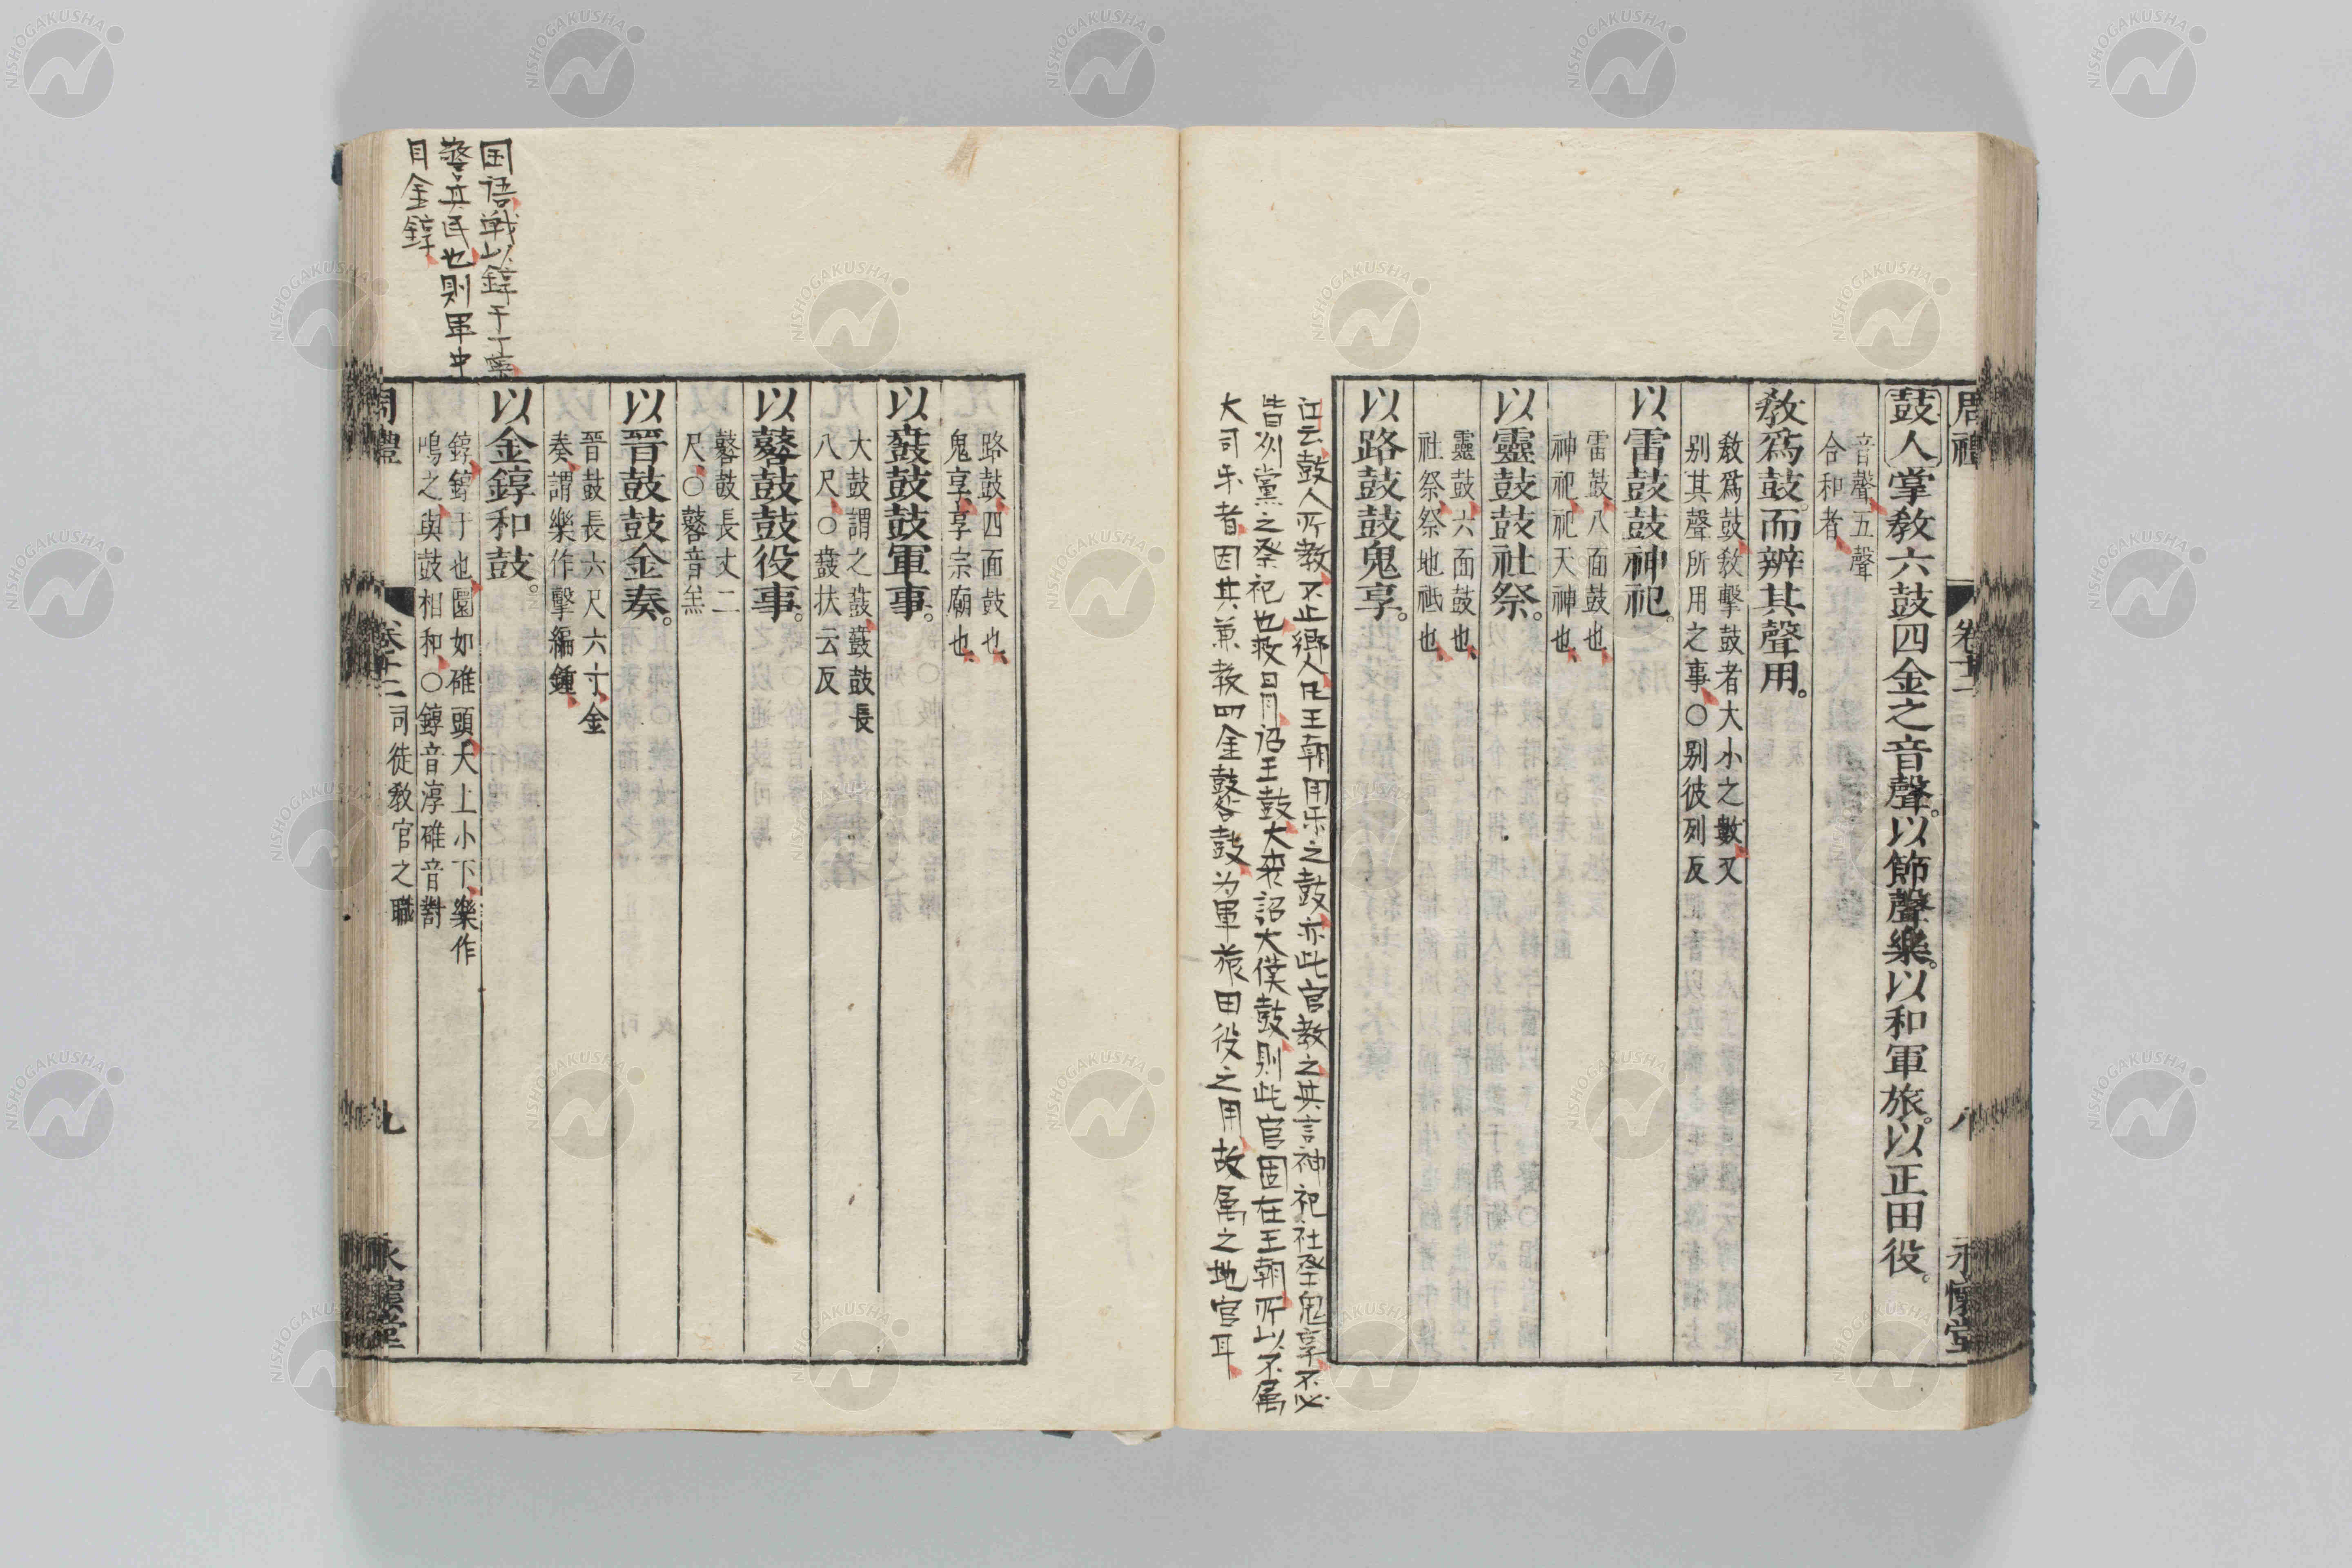 周禮
卷十二
八
永懷堂
鼓人掌教六鼓四金之音聲。以節聲樂。以和軍旅。以正田役。
音聲、五聲
合和者、
教爲鼓。而辨其聲用。
教爲鼓、教擊鼓者大小之數、又
别其聲所用之事、○别彼列反
以雷鼓鼓神祀。
雷鼓、八面鼓也、
神祀、祀天神也、
以靈鼓鼓社祭。
靈鼓、六面鼓也、
社祭、祭地祇也、
以路鼓鼓鬼享。
江云鼓人所教不止鄉人凡王朝用乐之鼓亦此官教之其言神祀社祭鬼享不必
皆州黨之祭祀也救日月詔王鼓大喪詔大僕鼓則此官固在王朝所以不属
大司乐者因其兼教四金鼛鼓为軍旅田役之用故属之地官耳
路鼓、四面鼓也、
鬼享、享宗廟也、
以鼖鼓鼓軍事。
大鼓謂之鼖、鼖鼓長
八尺、○鼖扶云反
以鼛鼓鼓役事。
鼛鼓長丈二
尺、○鼛音羔
以晉鼓鼓金奏。
晉鼓長六尺六寸、金
奏、謂樂作擊編鍾、
以金錞和鼓。
錞、錞于也、圜如碓頭、大上小下、樂作
鳴之、與鼓相和、○錞音淳碓音對
国语戦以錞于丁寧
警其民也則軍中
自金錞
周禮
卷十二
司徒教官之職
九
永懷堂
NISHOGAKUSHA